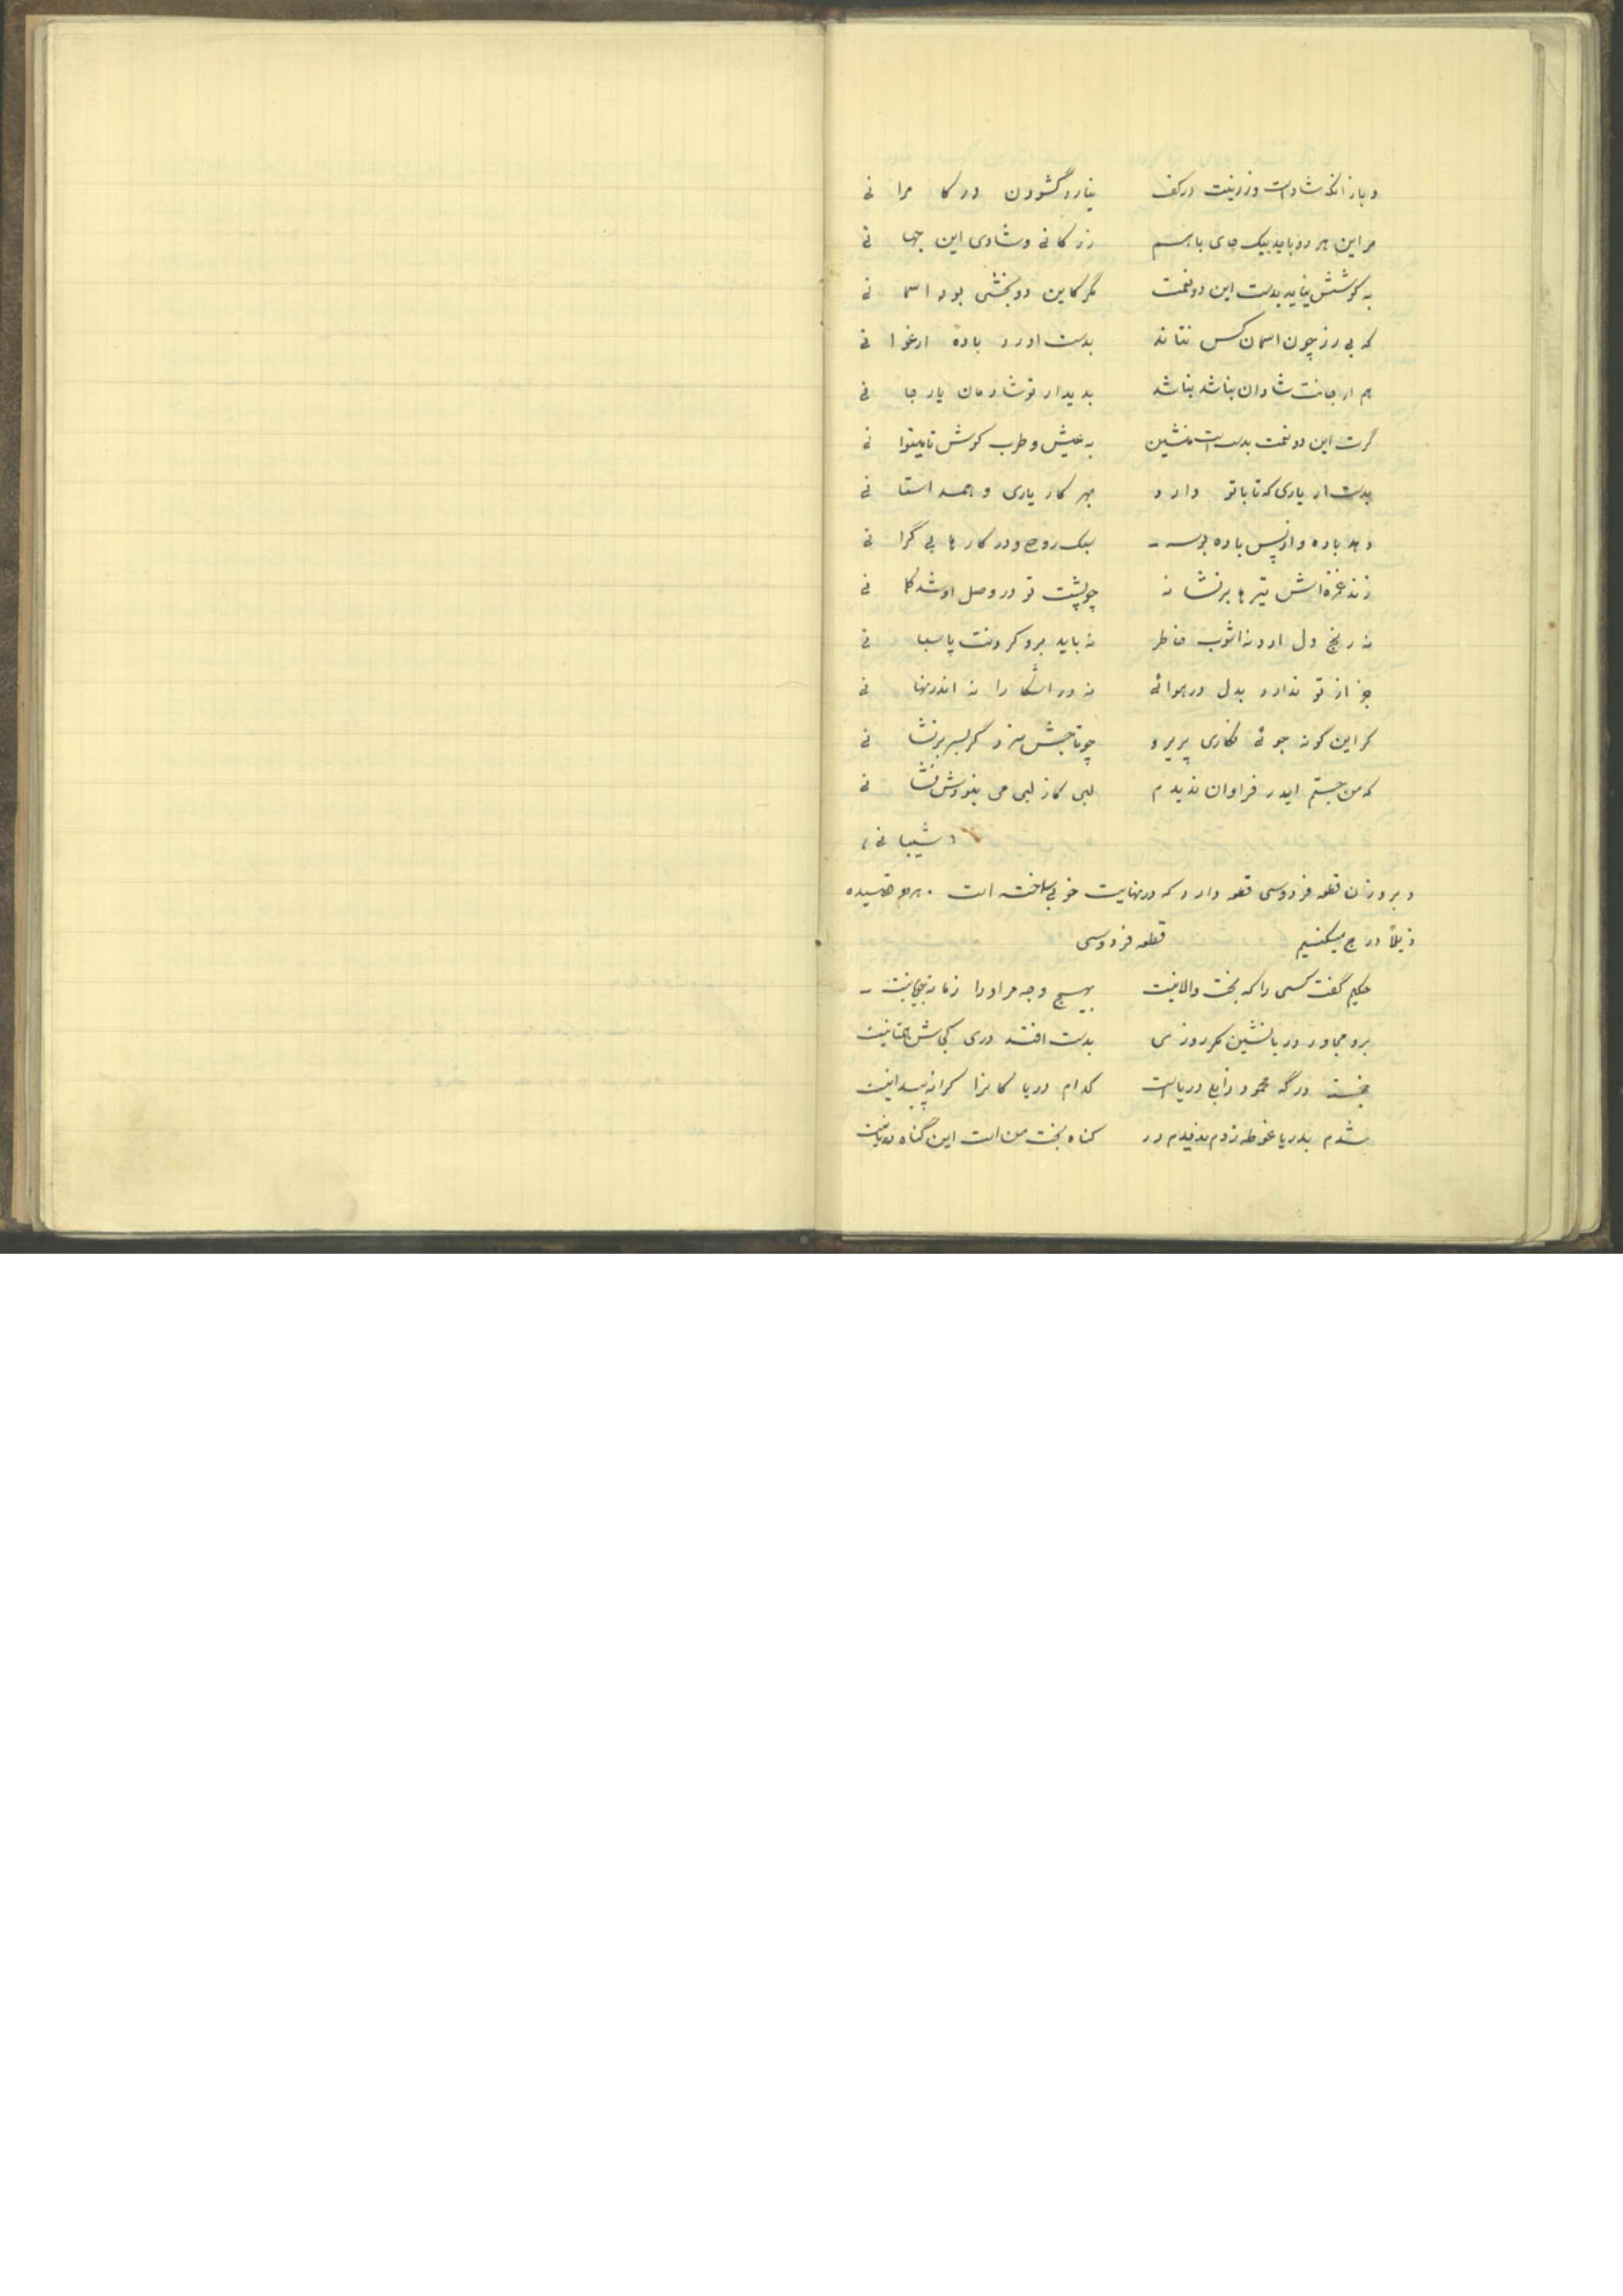 و باز آنکه شاد است و زر نیست در کف نیارد گشودن در کامرانی
مر این هر دو باید بیک جای با هم زر کانی و شادی این جهانی
به کوشش نیاید بدست این دو نعمت مگر کاین دو بخشی بود اسمانی
که بی زر چون اسمان کس نتاند بدست اورد بادهٔ ارغوانی
هم ار جانت شادان نباشد نباشد بدیدار تو شادمان یار جانی
گرت این دو نعمت بدست است منشین به عیش و طرب کوش تا میتوانی
بدست ار یاری که تا با تو دارد بهر کار یاری و همداستانی
دهد باده و از پس باده بوسه سبک روح و در کارها بی گرانی
زند غمزه اش تیرها بر نشانه چو پشت تو در وصل او شد کمانی
نه رنج دل ارد نه اشوب خاطر نه باید برو کردنت پاسبانی
جز از تو ندارد بدل در هوائی نه در اشکارا نه اندر نهانی
گر این گونه جوئی نگاری پریرو چو تاجش سزد گر بسر بر نشانی
که من جستم ایدر فراوان ندیدم لبی کاز لبی می بنودش نشانی
(شیبانی)
و بر وزن قطعه فردوسی قطعه دارد که در نهایت خوبی ساخته است . هر دو قصیده
ذیلاً درج میکنیم قطعه فردوسی
حکیم گفت کسی را که بخت والا نیست بهیچ وجه مر او را زمانه جویا نیست
برو مجاور دریا نشین مگر روزی بدست افتد دری کجاش همتا نیست
خجسته درگه محمود زابلی دریاست کدام دریا کانرا کرانه پیدا نیست
شدم بدریا غوطه زدم ندیدم در گناه بخت من است این گناه دریا نیست